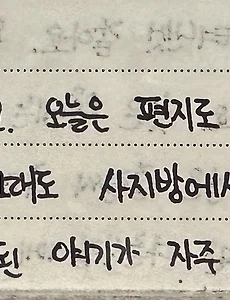 . 오늘은 편지로
그래도 사지방에서
된 얘기가 자주